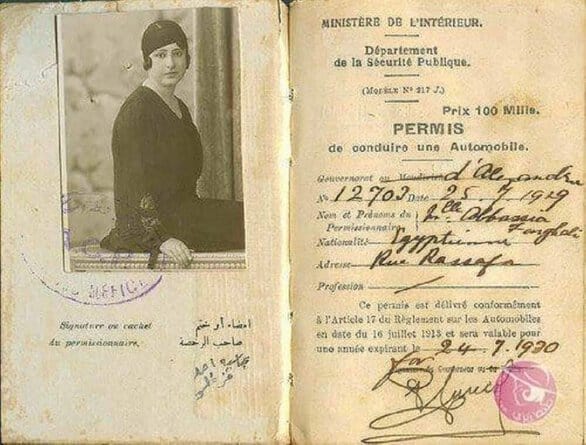 Signature ou cachet
du permissionnaire.
امضاء أو ختم
صاحب الرخصة
MINISTÈRE DE L'INTÉRIEUR.
Département
de la Sécurité Publique.
(MODÈLE N° 217 J.)
Prix 100 Mills.
PERMIS
de conduire une Automobile.
Gouvernorat ou d'Alexandrie
N° 12703 Date 25 7 1929
Nom et Prénoms du Mlle Abbassia
Permissionnaire Farghali
Nationalité Egyptienne
Adresse Rue Rassafa
Profession
Ce permis est délivré conformément
à l'Article 17 du Règlement sur les Automobiles
en date du 16 juillet 1913 et sera valable pour
une année expirant le 24.7.1930